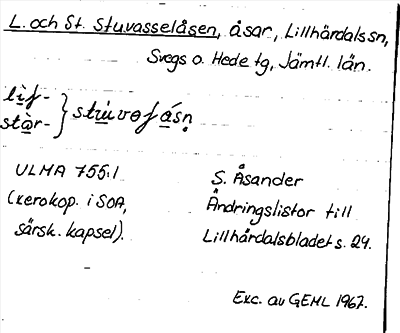 L. och St. Stuvasselåsen, åsar, Lillhärdals sn,
Svegs o. Hede tg, Jämtl. län.
lif-
stàr- } strùvofásn
ULMA 755:1
(xerokop. i SOA,
särsk. kapsel).
S. Åsander
Ändringslistor till
Lillhärdalsbladet s. 24.
Exc. av GEHL 1967.